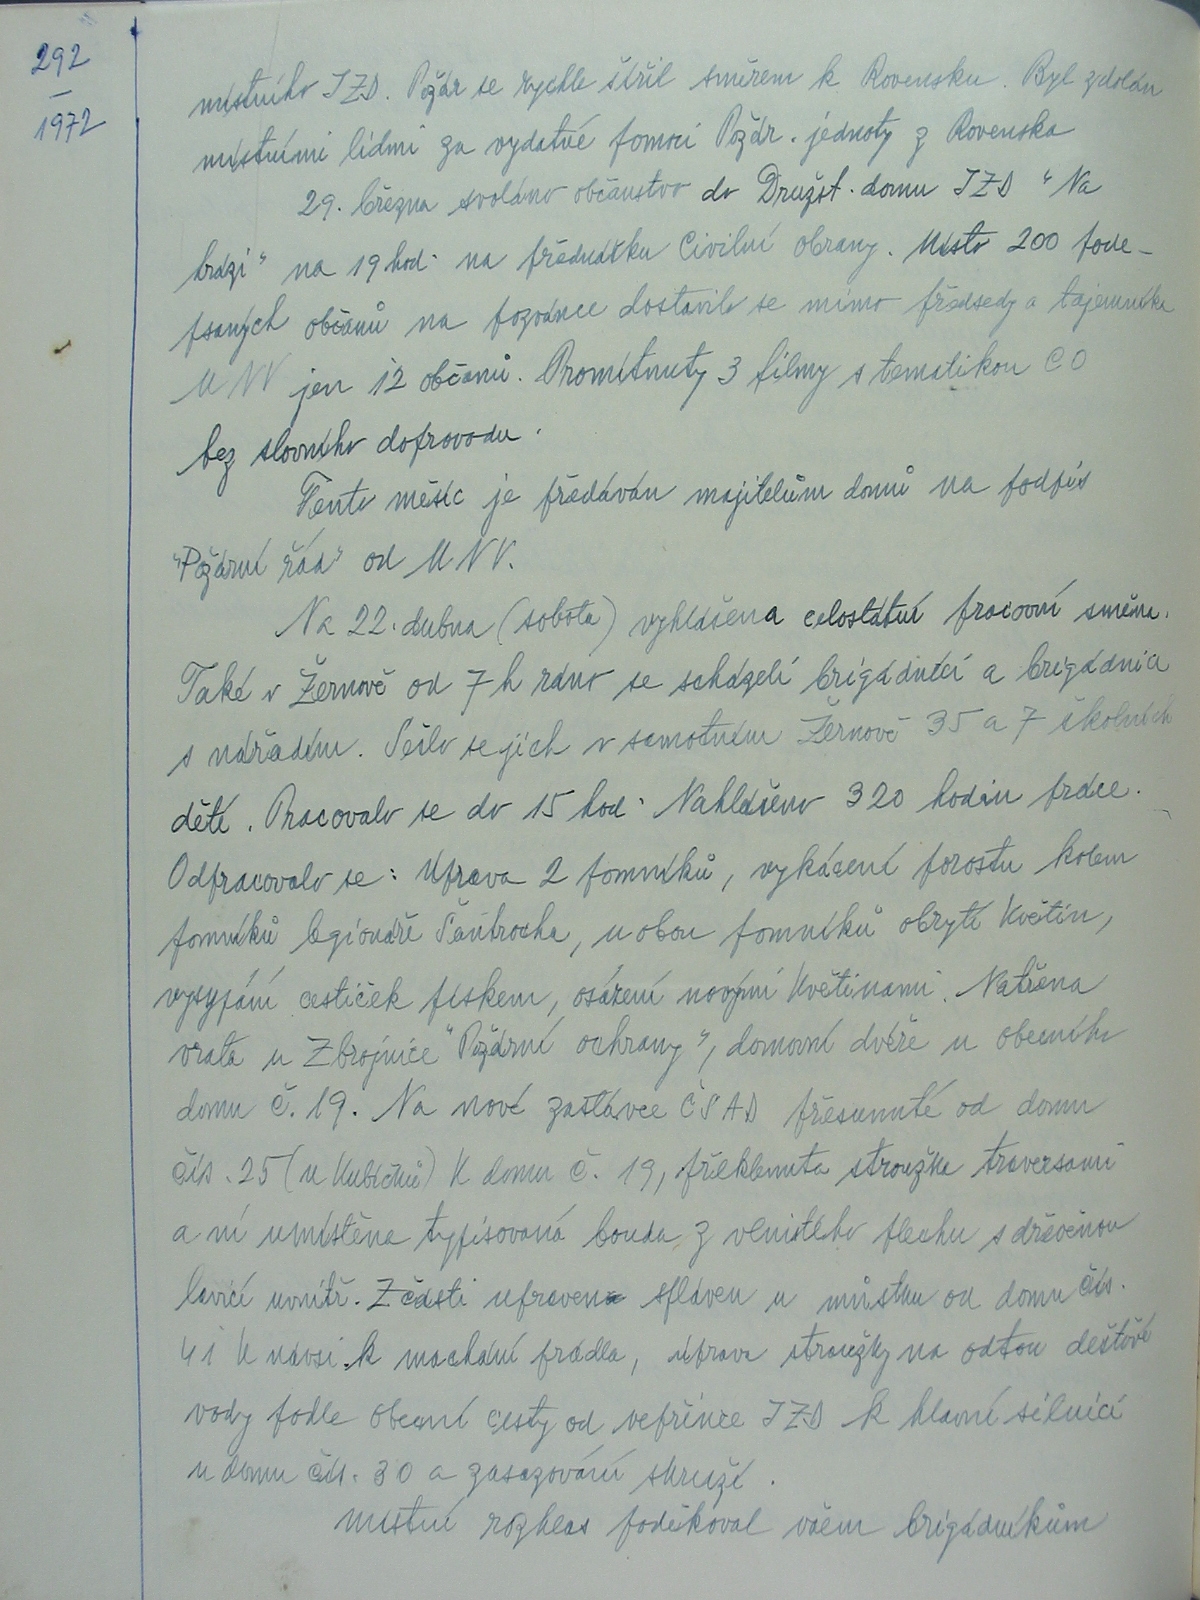 292
—
1972
místního JZD. Požár se rychle šířil směrem k Rovensku. Byl zdolán
místními lidmi za vydatné pomoci Požár. jednoty z Rovenska
29. března svoláno občanstvo do Družst. domu JZD "Na
hrázi" na 19 hod. na přednášku Civilní obrany. Místo 200 pode-
psaných občanů na pozvánce dostavilo se mimo předsedy a tajemníka
MNV jen 12 občanů. Promítnuty 3 filmy s tematikou CO
bez slovního doprovodu.
Tento měsíc je předáván majitelům domů na podpis
"Požární řád" od MNV.
Na 22. dubna (sobota) vyhlášena celostátní pracovní směna.
Také v Žernově od 7 h ráno se scházeli brigádníci a brigádnice
s nářadím. Sešlo se jich v samotném Žernově 35 a 7 školních
dětí. Pracovalo se do 15 hod. Nahlášeno 320 hodin práce.
Odpracovalo se: Úprava 2 pomníků, vykácení porostu kolem
pomníků legionáře Šantrocha, u obou pomníků obrytí květin,
vysypání cestiček pískem, osázení novými květinami. Natřena
vrata u Zbrojnice "Požární ochrany", domovní dvéře u obecního
domu č. 19. Na nové zastávce ČSAD přesunuté od domu
čís. 25 (u Kubíčků) k domu č. 19, překlenuta stroužka traversami
a ní umístěna typisovaná bouda z vlnitého plechu s dřevěnou
lavicí uvnitř. Z části upraven splaven u můstku od domu čís.
41 k návsi k máchání prádla, úprava stroužky na odtok dešťové
vody podle obecní cesty od vepřince JZD k hlavní silnici
u domu čís. 30 a zasazování skruží.
Místní rozhlas poděkoval všem brigádníkům